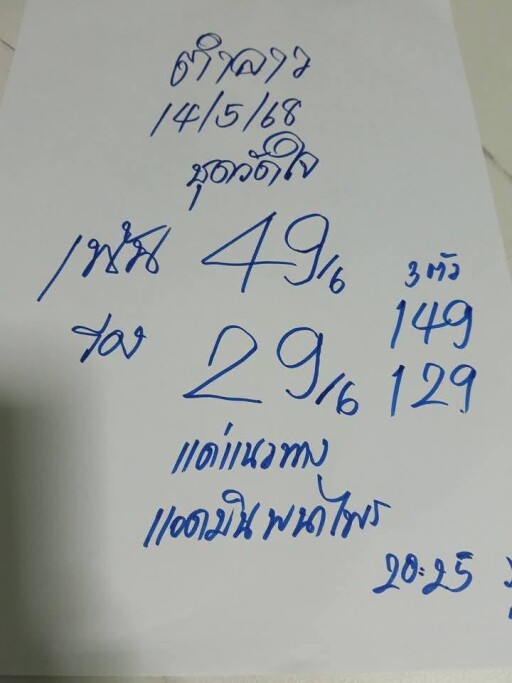 ตำลาว
14/5/68
ชุดวัดใจ
เน้น 49/6
รอง 29/6
3 ตัว
149
129
แค่แนวทาง
แอดมิน พนาไพร
20:25